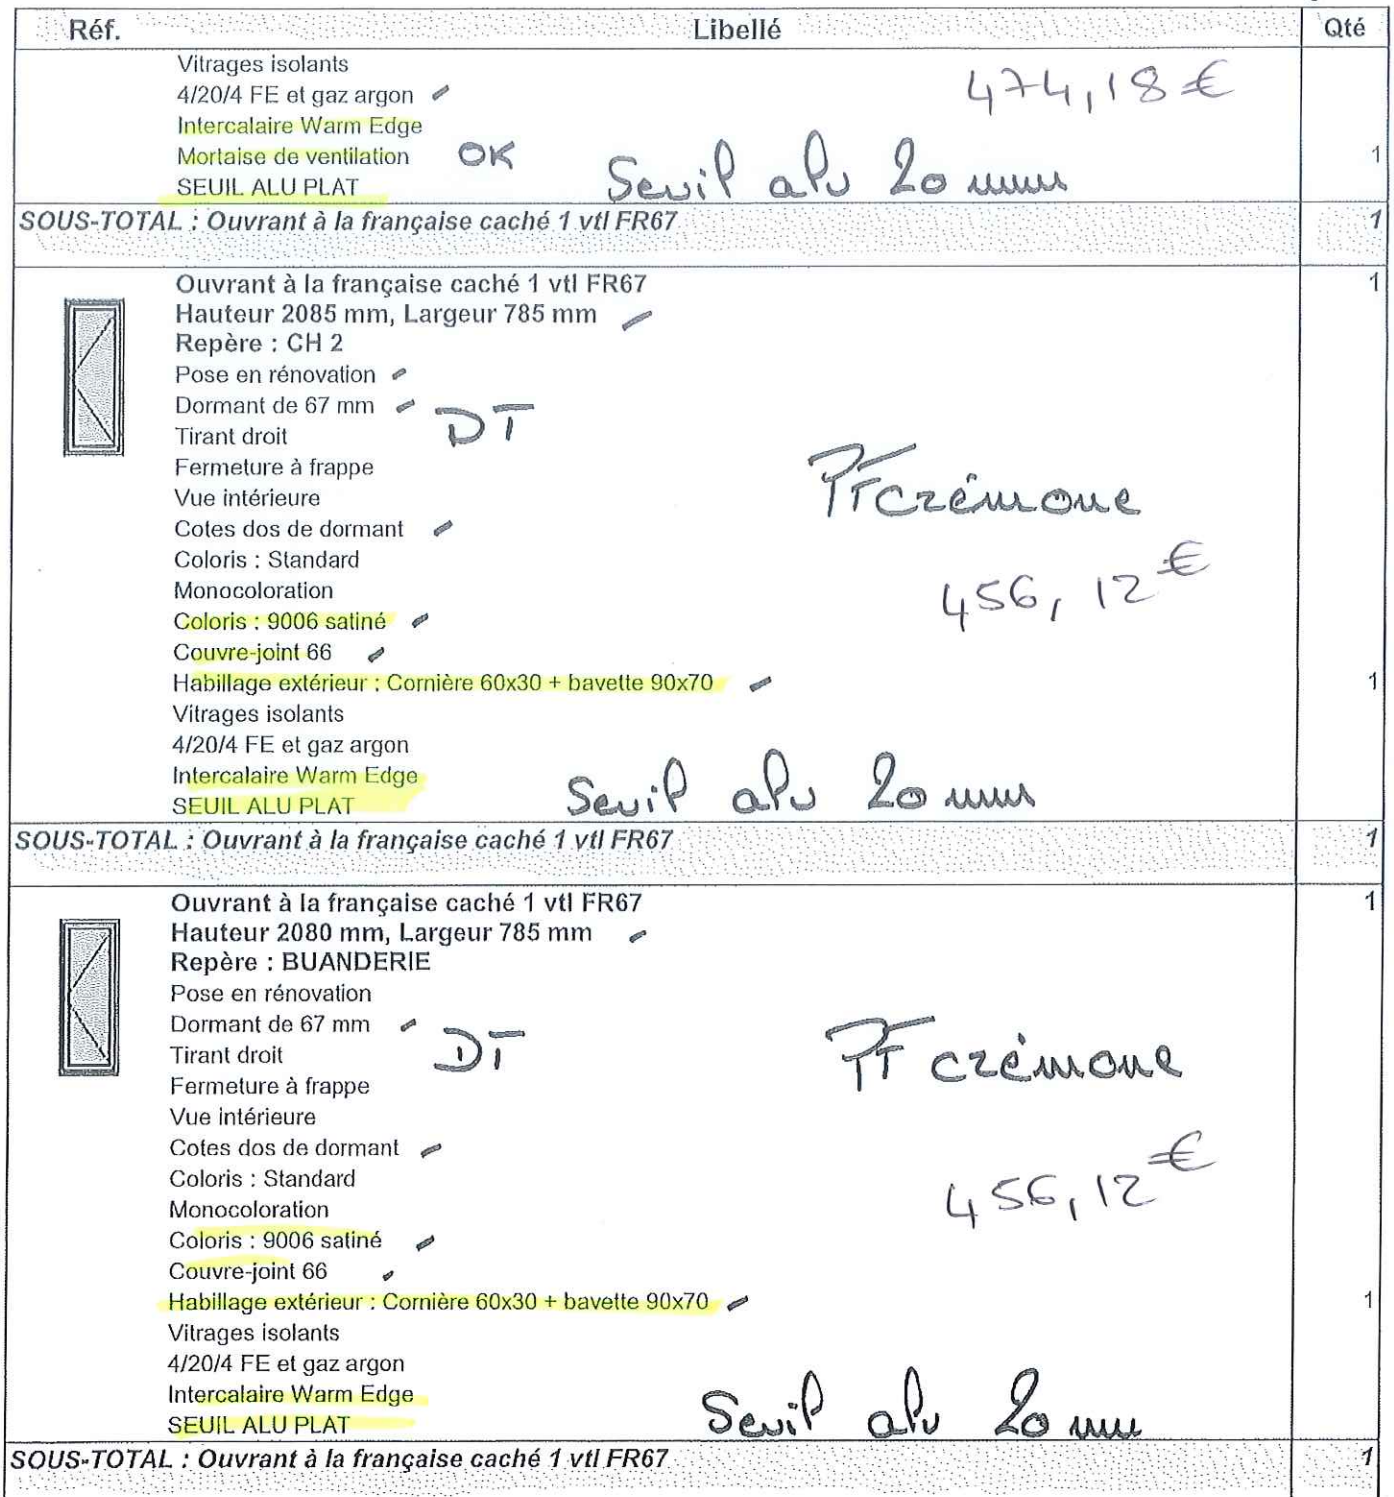 Réf. Libellé Qté
Vitrages isolants
474,18 €
4/20/4 FE et gaz argon
Intercalaire Warm Edge
Mortaise de ventilation OK 1
SEUIL ALU PLAT Seuil alu 20 mm
SOUS-TOTAL : Ouvrant à la française caché 1 vtl FR67 1
Ouvrant à la française caché 1 vtl FR67 1
Hauteur 2085 mm, Largeur 785 mm
Repère : CH 2
Pose en rénovation
Dormant de 67 mm DT
Tirant droit
Fermeture à frappe
Vue intérieure PF crémone
Cotes dos de dormant
Coloris : Standard
Monocoloration 456,12 €
Coloris : 9006 satiné
Couvre-joint 66
Habillage extérieur : Cornière 60x30 + bavette 90x70 1
Vitrages isolants
4/20/4 FE et gaz argon
Intercalaire Warm Edge
SEUIL ALU PLAT Seuil alu 20 mm
SOUS-TOTAL : Ouvrant à la française caché 1 vtl FR67 1
Ouvrant à la française caché 1 vtl FR67 1
Hauteur 2080 mm, Largeur 785 mm
Repère : BUANDERIE
Pose en rénovation
Dormant de 67 mm DT
Tirant droit PF crémone
Fermeture à frappe
Vue intérieure
Cotes dos de dormant
Coloris : Standard 456,12 €
Monocoloration
Coloris : 9006 satiné
Couvre-joint 66
Habillage extérieur : Cornière 60x30 + bavette 90x70 1
Vitrages isolants
4/20/4 FE et gaz argon
Intercalaire Warm Edge
SEUIL ALU PLAT Seuil alu 20 mm
SOUS-TOTAL : Ouvrant à la française caché 1 vtl FR67 1